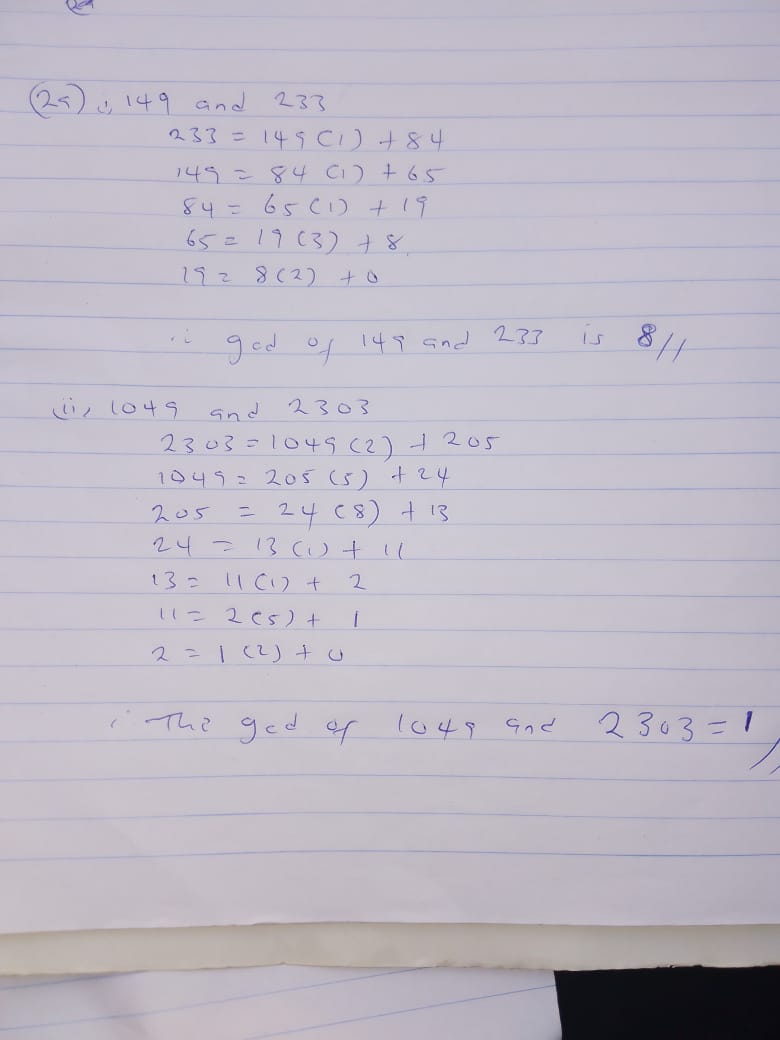 (2a) i, 149 and 233
233 = 149 (1) + 84
149 = 84 (1) + 65
84 = 65 (1) + 19
65 = 19 (3) + 8
19 = 8 (2) + 0
∴ gcd of 149 and 233 is 8//
(ii, 1049 and 2303
2303 = 1049 (2) + 205
1049 = 205 (5) + 24
205 = 24 (8) + 13
24 = 13 (1) + 11
13 = 11 (1) + 2
11 = 2 (5) + 1
2 = 1 (2) + 0
∴ The gcd of 1049 and 2303 = 1//